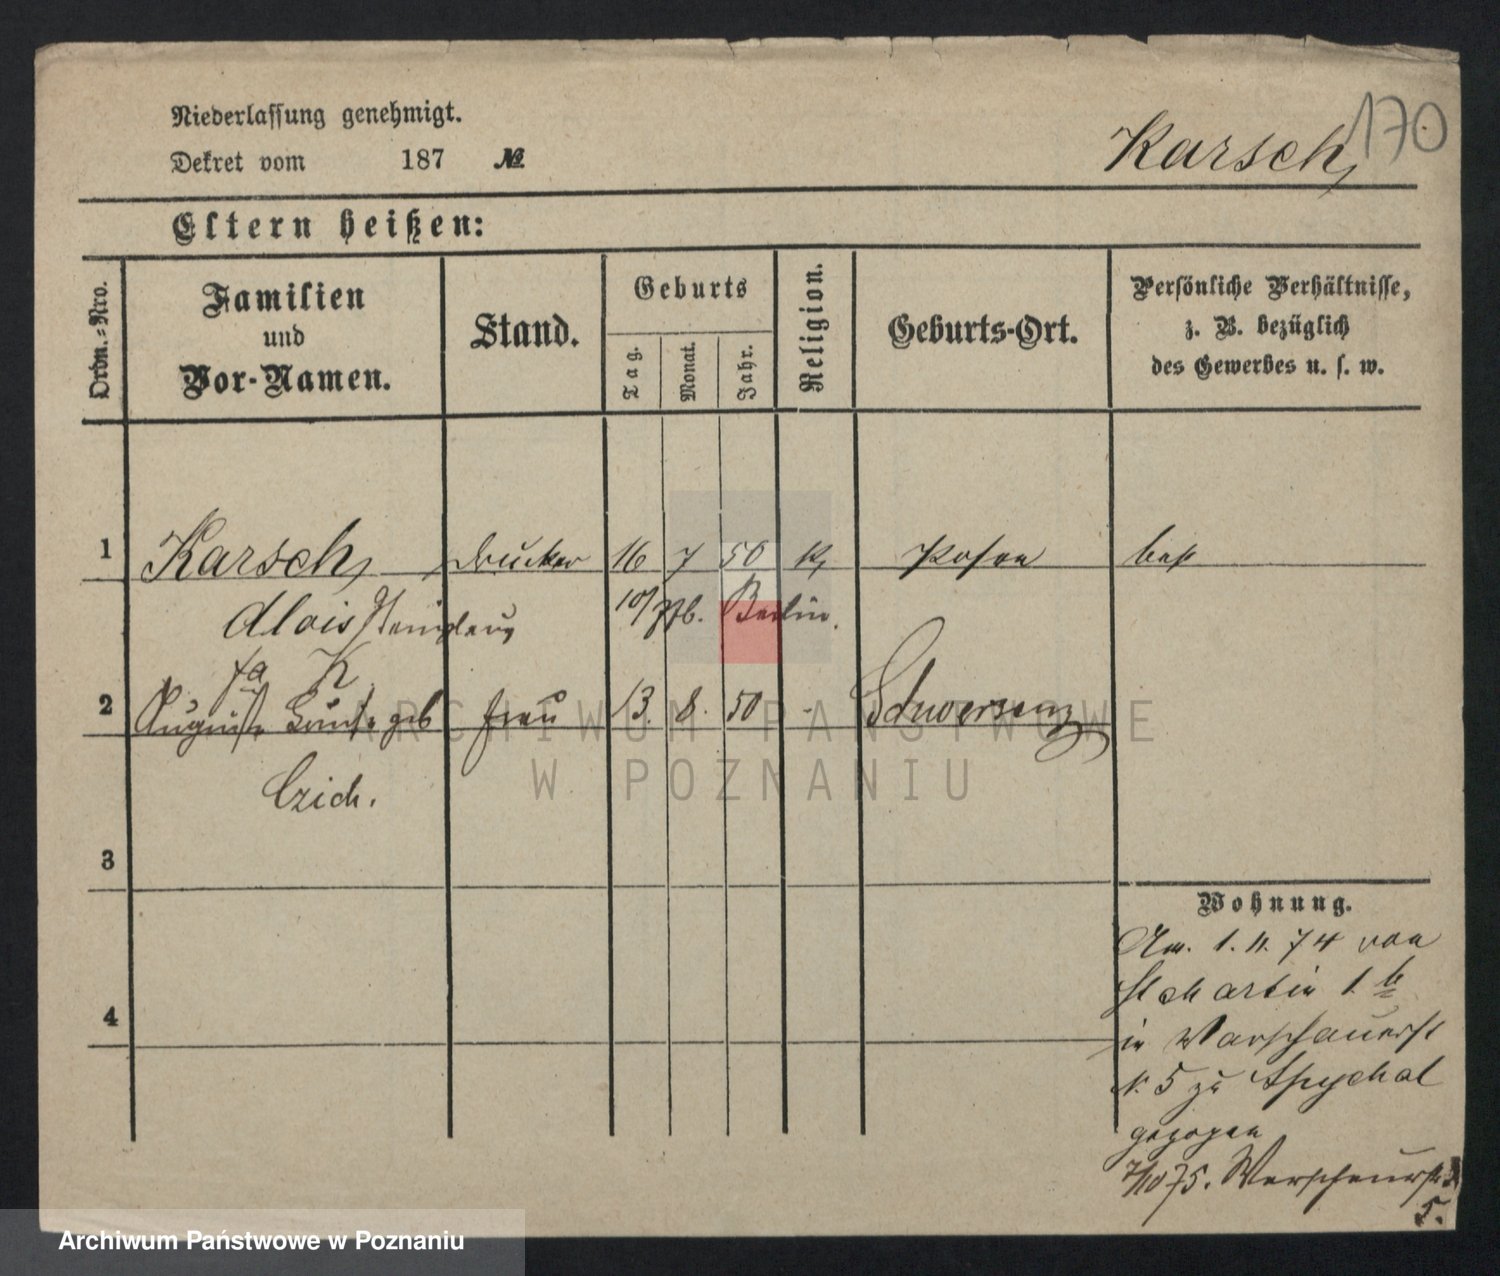 170
Niederlassung genehmigt.
Karsch,
Dekret vom 187 №
Eltern heißen:
Ordn.-Nro.
Familien
und
Vor-Namen.
Stand.
Geburts
Tag.
Monat.
Jahr.
Religion.
Geburts-Ort.
Persönliche Verhältnisse,
z. B. bezüglich
des Gewerbes u. s. w.
1 Karsch, Drucker 16 7 50 k, Posen
Alois Stanislaus 10/7 76. Berlin.
K
2 Auguste geb Frau 13. 8. 50 - Schwersenz
Czich.
3
4
Wohnung.
Am. 1. 11. 74 von
St Martin 1 b
in Warschauerst
N. 5 zu Spychal
gezogen
7/10 75. Warschauerstr
5.
ARCHIWUM PAŃSTWOWE
W POZNANIU
Archiwum Państwowe w Poznaniu